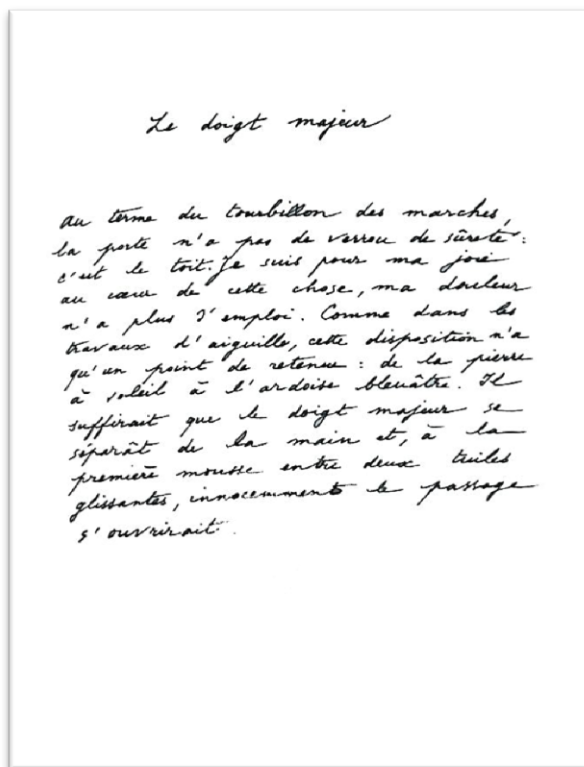 Le doigt majeur
Au terme du tourbillon des marches,
la porte n'a pas de verrou de sûreté :
c'est le toit. Je suis pour ma joie
au cœur de cette chose, ma douleur
n'a plus d'emploi. Comme dans les
travaux d'aiguille, cette disposition n'a
qu'un point de retenue : de la pierre
à soleil à l'ardoise bleuâtre. Il
suffirait que le doigt majeur se
séparât de la main et, à la
première mousse entre deux tuiles
glissantes, innocemment le passage
s'ouvrirait.